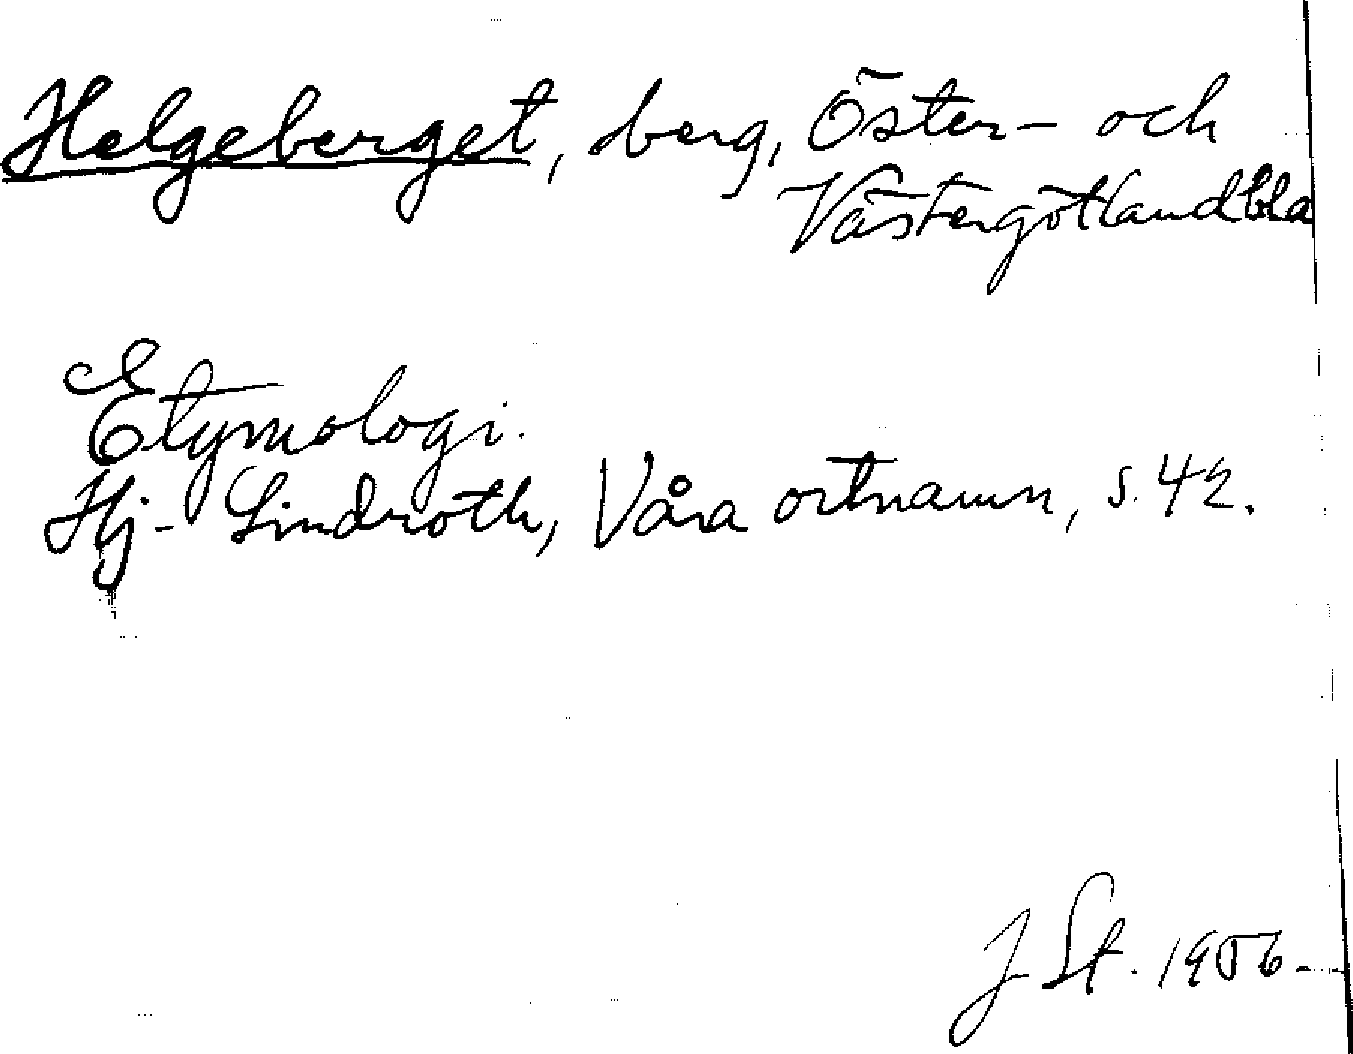 Helgeberget, berg, Öster- och
Västergötland bla
Etymologi.
Hj. Lindroth, Våra ortnamn, s. 42.
J St. 1956.